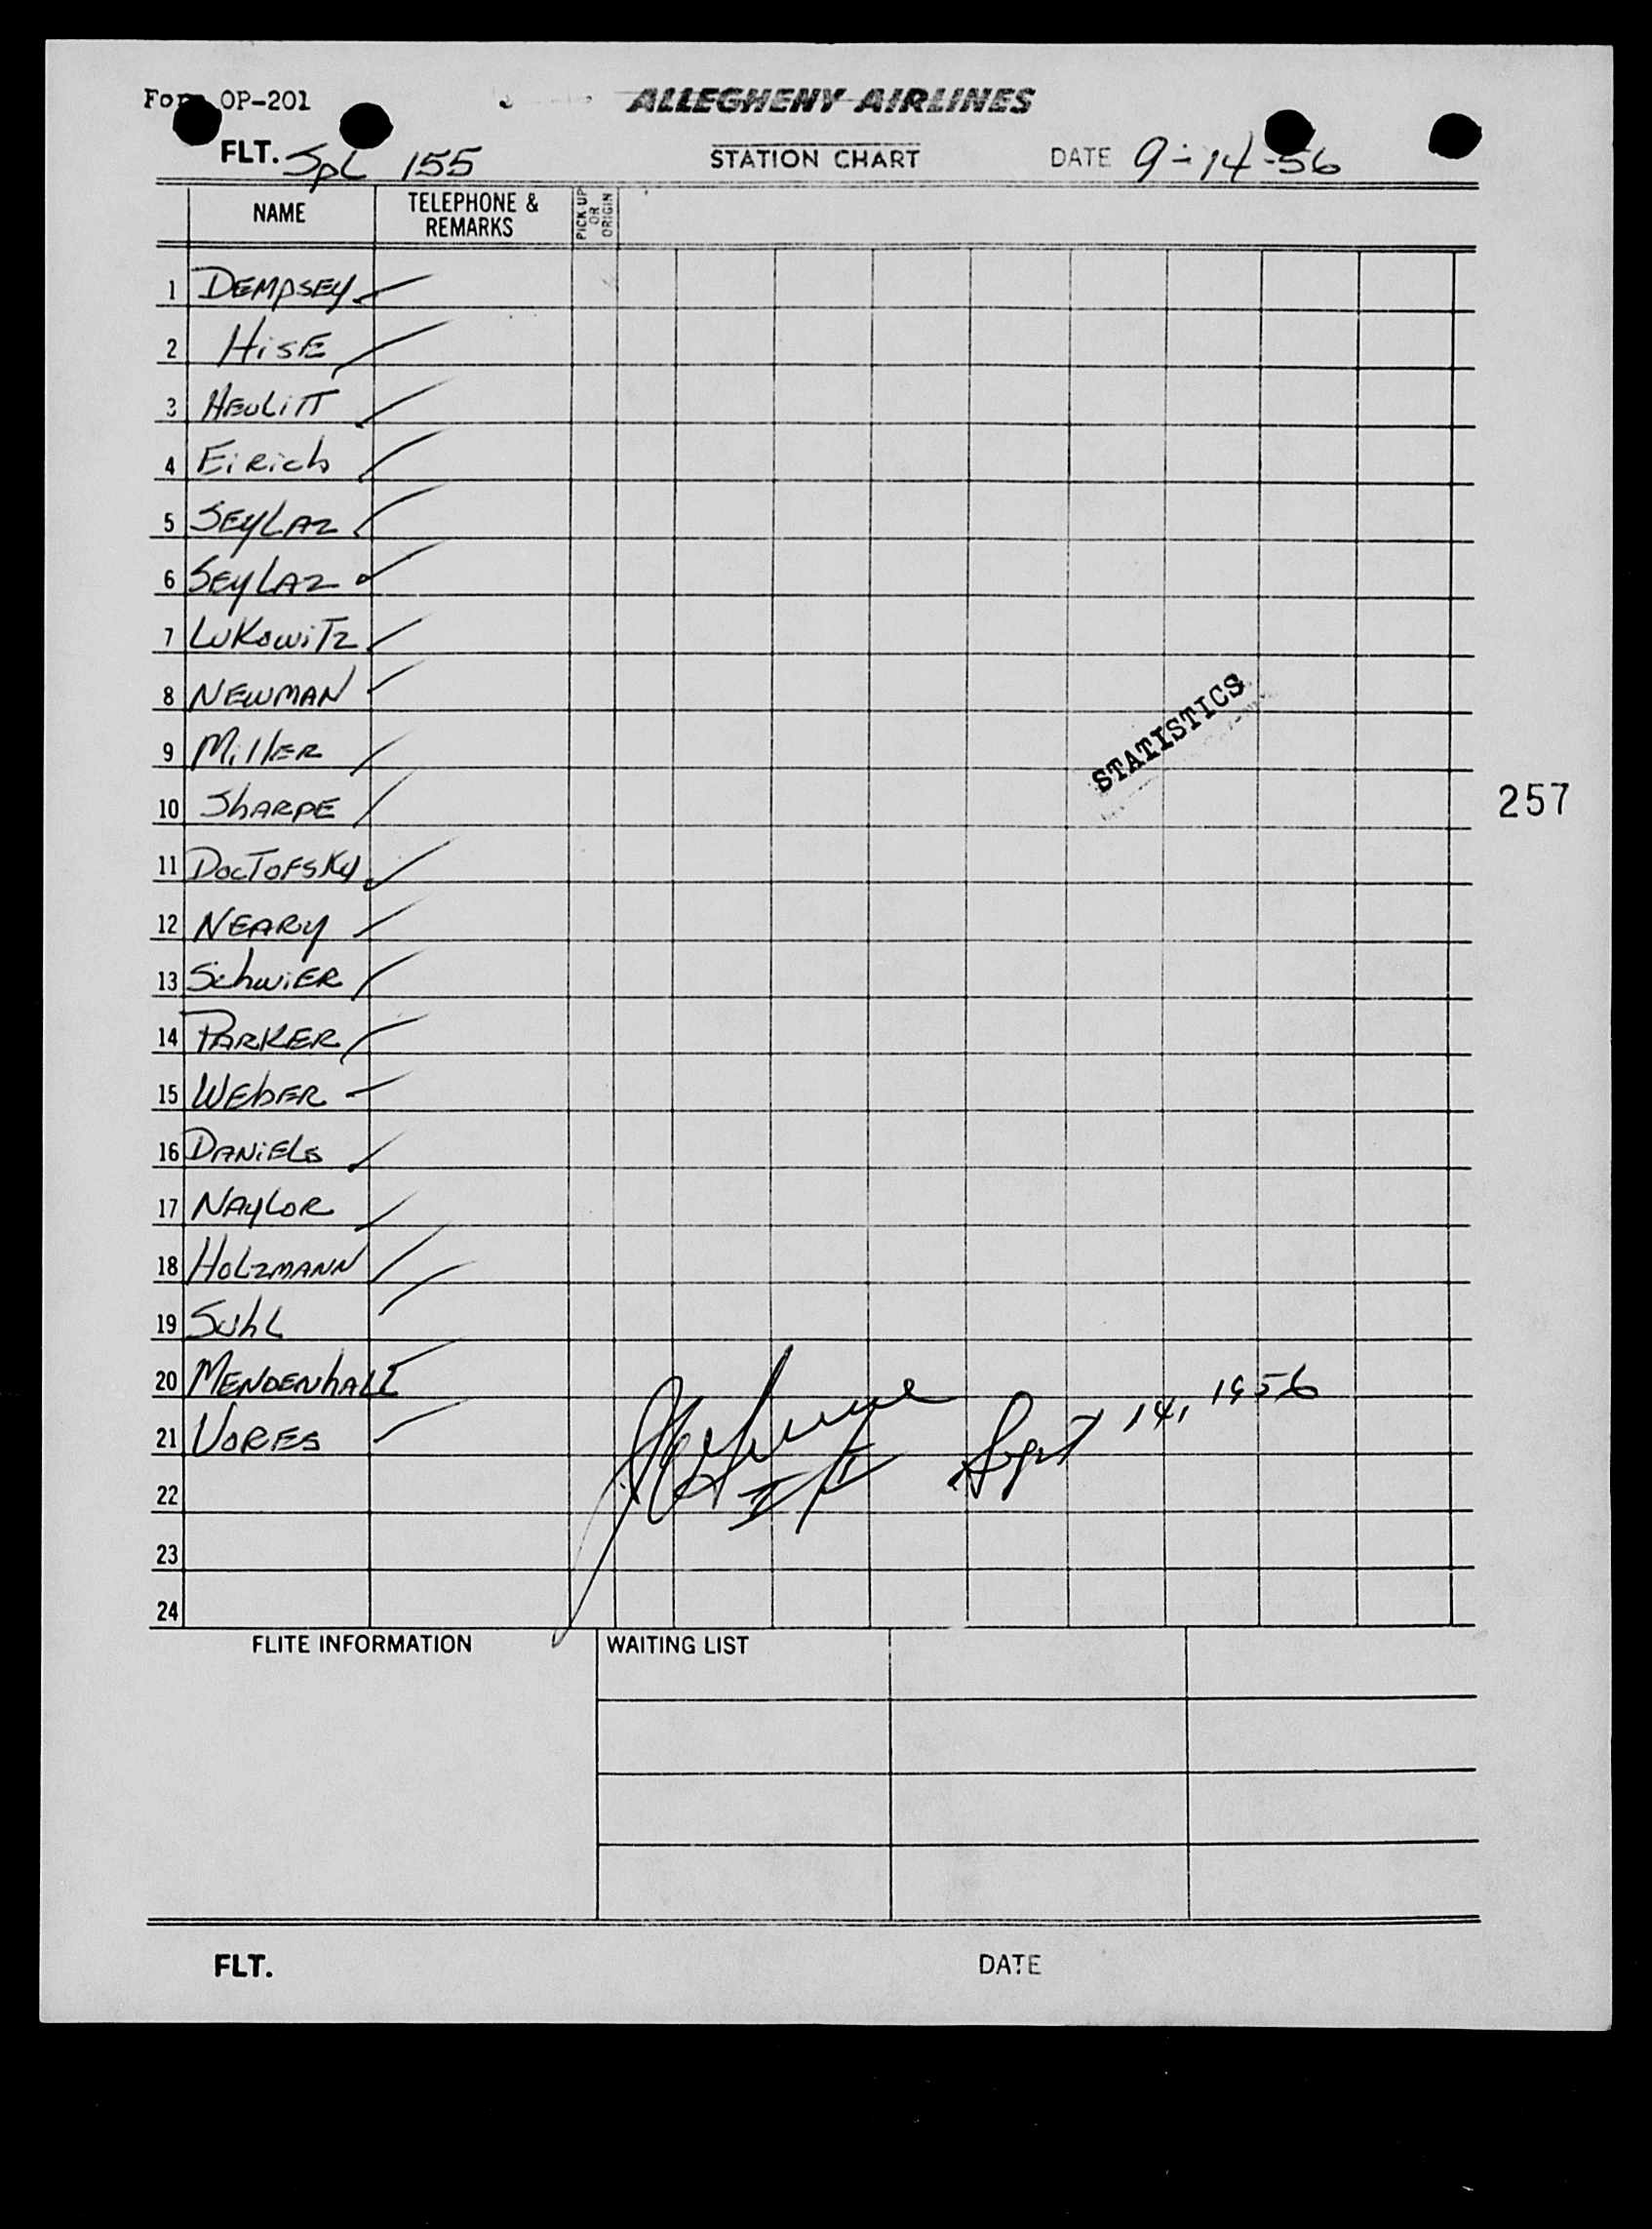 Form OP-201 ALLEGHENY AIRLINES
FLT. Spl 155 STATION CHART DATE 9-14-56
NAME TELEPHONE & REMARKS PICK UP OR ORIGIN
1 DEMPSEY
2 HisE
3 HEULiTT
4 EiRich
5 SEyLAz
6 SEyLAz
7 LuKowiTz
8 NEWMAN
9 MillER
10 ShARPE
11 DocTOFSKy
12 NEARy
13 SchwiER
14 PARKER
15 WEbER
16 DANiELs
17 NAyLOR
18 HOLZMANN
19 SuhL
20 MENDENhALL
21 VORES
22
23
24
STATISTICS
257
Sept 14, 1956
FLITE INFORMATION WAITING LIST
FLT. DATE